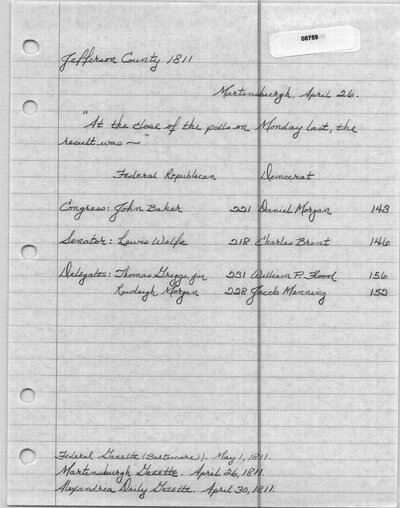 08759
Jefferson County 1811
Martinsburgh, April 26.
"At the close of the polls on Monday last, the
result was ~"
Federal Republican Democrat
Congress: John Baker 221 Daniel Morgan 143
Senator: Lewis Wolfe 218 Charles Brent 146
Delegates: Thomas Griggs, jun 231 William P. Flood 156
Rawleigh Morgan 228 Jacob Manning 152
Federal Gazette (Baltimore). May 1, 1811.
Martinsburgh Gazette. April 26, 1811.
Alexandria Daily Gazette. April 30, 1811.